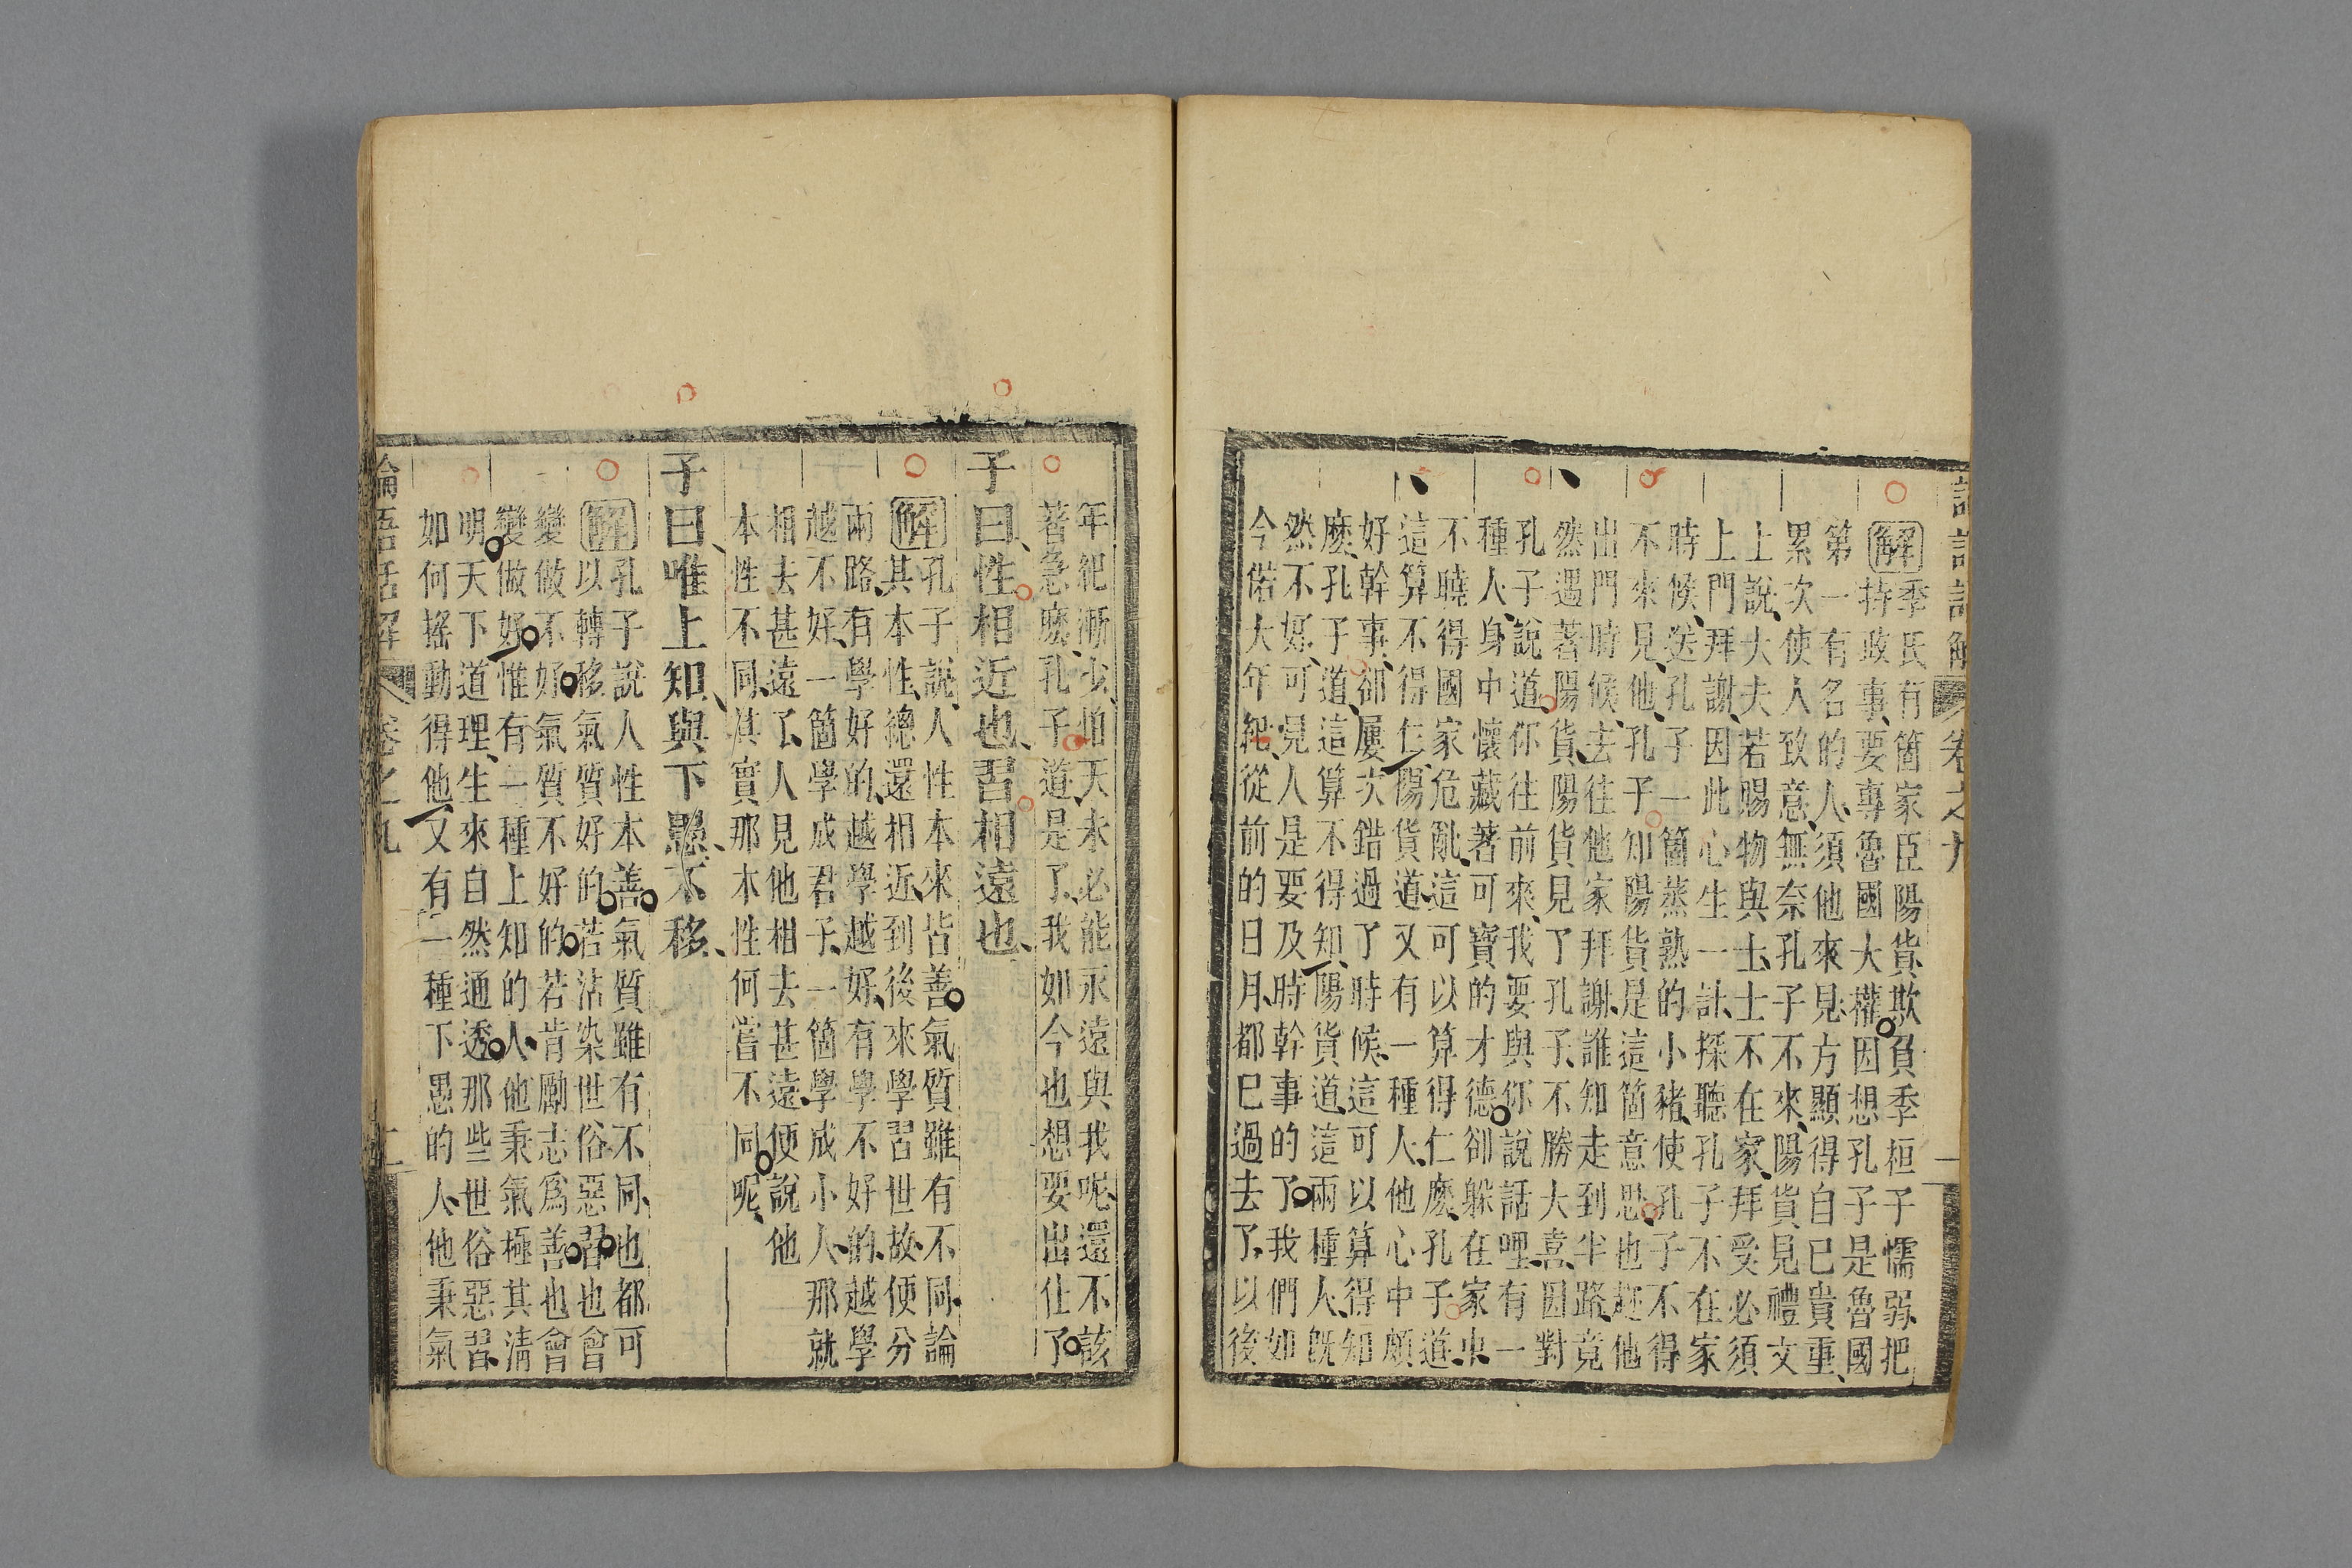 卷之九
解季氏有箇家臣陽貨欺負季桓子懦弱把
持政事要專魯國大權因想孔子是魯國
第一有名的人須他來見方顯得自已貴重
累次使人致意無奈孔子不來陽貨見禮文
上說大夫若賜物與士士不在家拜受必須
上門拜謝因此心生一計探聽孔子不在家
時候送孔子一箇蒸熟的小豬使孔子不得
不來見他孔子知陽貨是這箇意思也趕他
出門時候去往他家拜謝誰知走到半路竟
然遇著陽貨陽貨見了孔子不勝大喜因對
孔子說道你往前來我要與你說話哩有一
種人身中懷藏著可寶的才德卻躲在家中
不曉得國家危亂這可以算得仁麽孔子道
這算不得仁陽貨道又有一種人他心中頗
好幹事卻屢次錯過了時候這可以算得知
麽孔子道這算不得知陽貨道這兩種人旣
然不好可見人是要及時幹事的了我們如
今偌大年紀從前的日月都已過去了以後
年紀漸少怕天未必能永遠與我呢還不該
著急麽孔子道是了我如今也想要出仕了
子曰性相近也習相遠也
解孔子說人性本來皆善氣質雖有不同論
其本性總還相近到後來學習世故便分
兩路有學好的越學越好有學不好的越學
越不好一箇學成君子一箇學成小人那就
相去甚遠了人見他相去甚遠便說他
本性不同其實那本性何嘗不同呢
子曰唯上知與下愚不移
解孔子說人性本善氣質雖有不同也都可
以轉移氣質好的若沾染世俗惡習也會
變做不好氣質不好的若肯勵志爲善也會
變做好惟有一種上知的人他秉氣極其淸
明天下道理生來自然通透那些世俗惡習
如何搖動得他又有一種下愚的人他秉氣
論語話解 卷之九 二